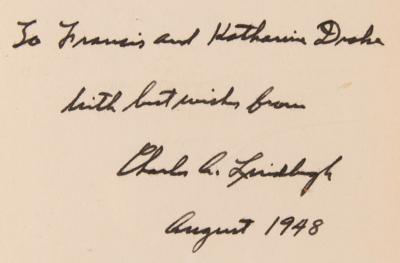 To Francis and Katharine Drake
With best wishes from
Charles A. Lindbergh
August 1948